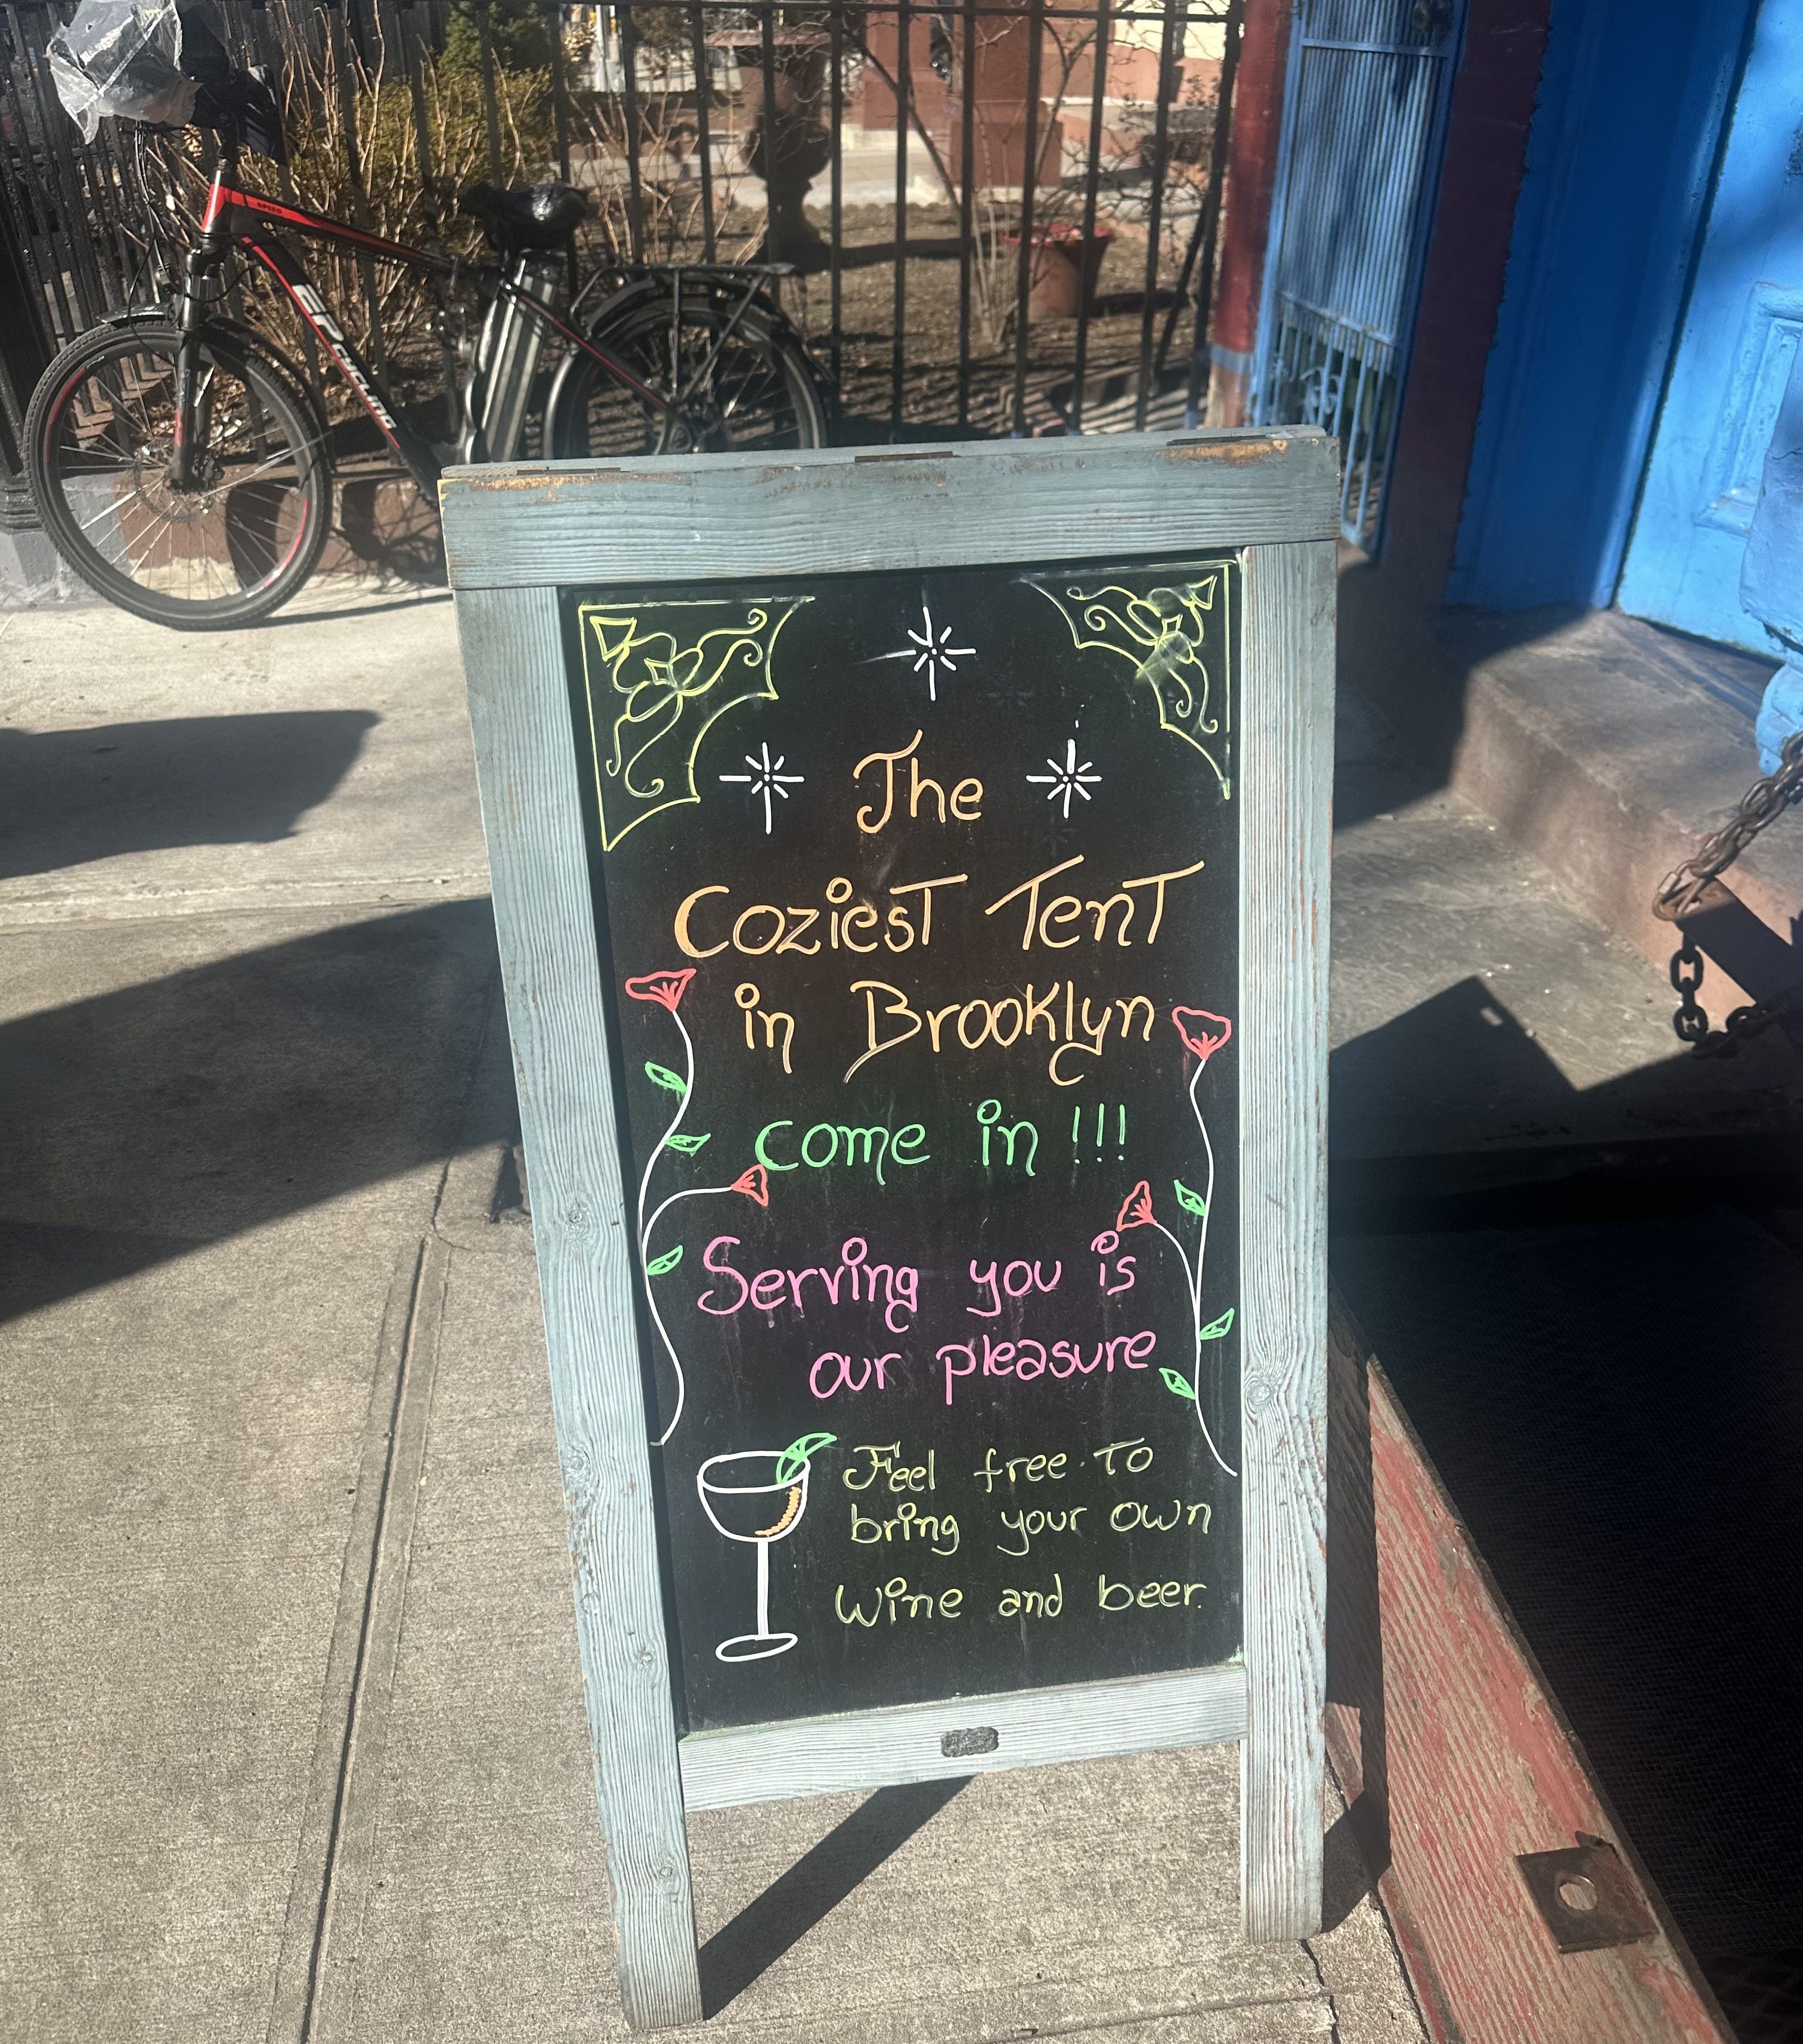 SPEED
CYCLING
The
Coziest Tent
in Brooklyn
come in !!!
Serving you is
our pleasure
Feel free to
bring your own
Wine and beer.